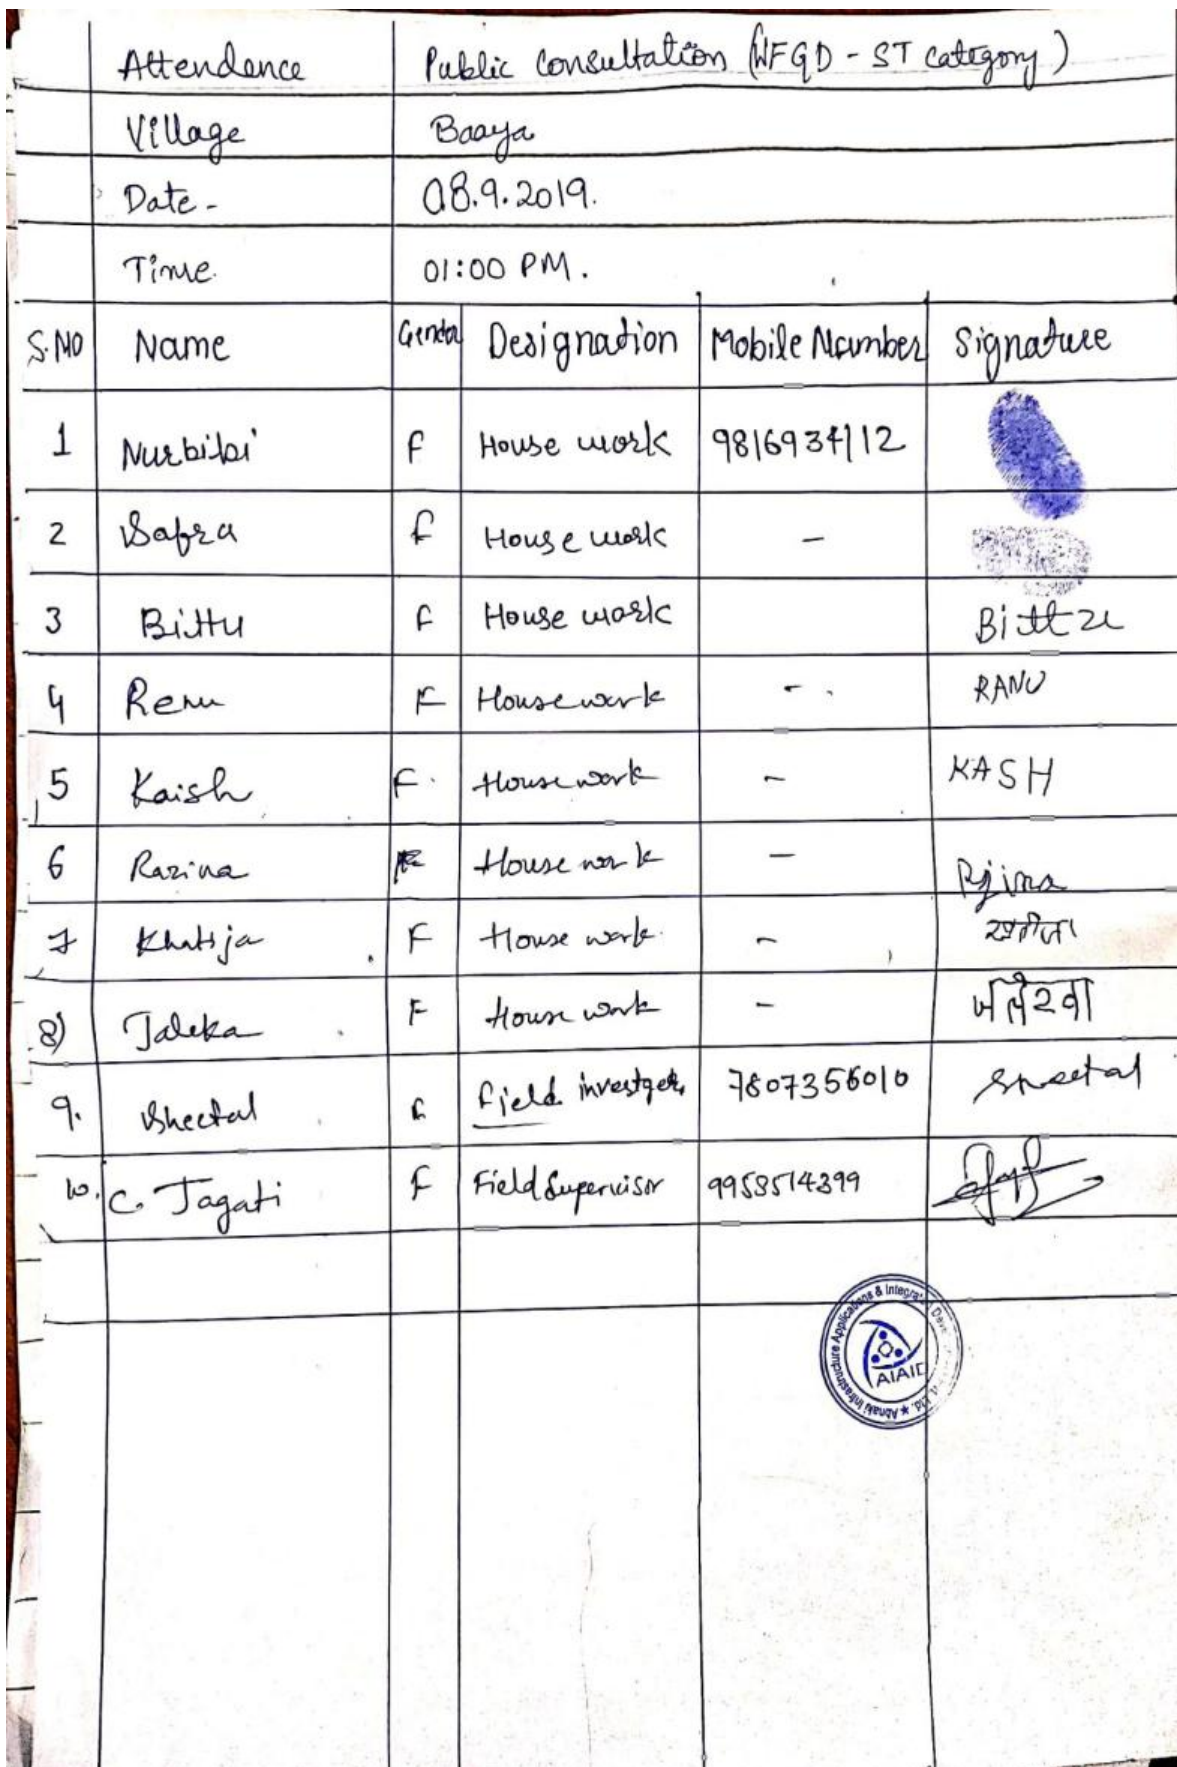 Attendence Public Consultation (WFGD - ST Category)
Village Baaya
Date - 08.9.2019.
Time 01:00 PM.
S.NO Name Gender Designation Mobile Number Signature
1 Nurbibi F House work 9816934112
2 Safra F House work -
3 Bittu F House work Bittu
4 Renu F House work - RANU
5 Kaish F. House work - KASH
6 Razina F House work - Rjina
7 Khatija F House work - खतीजा
8) Jaleka F House work -
9. Sheetal F Field 7807356010 Sheetal
10. C. Jagati F Field Supervisor 9958514399
Abnaki Infrastructure Applications & Integrated Ltd. ★
AIAID